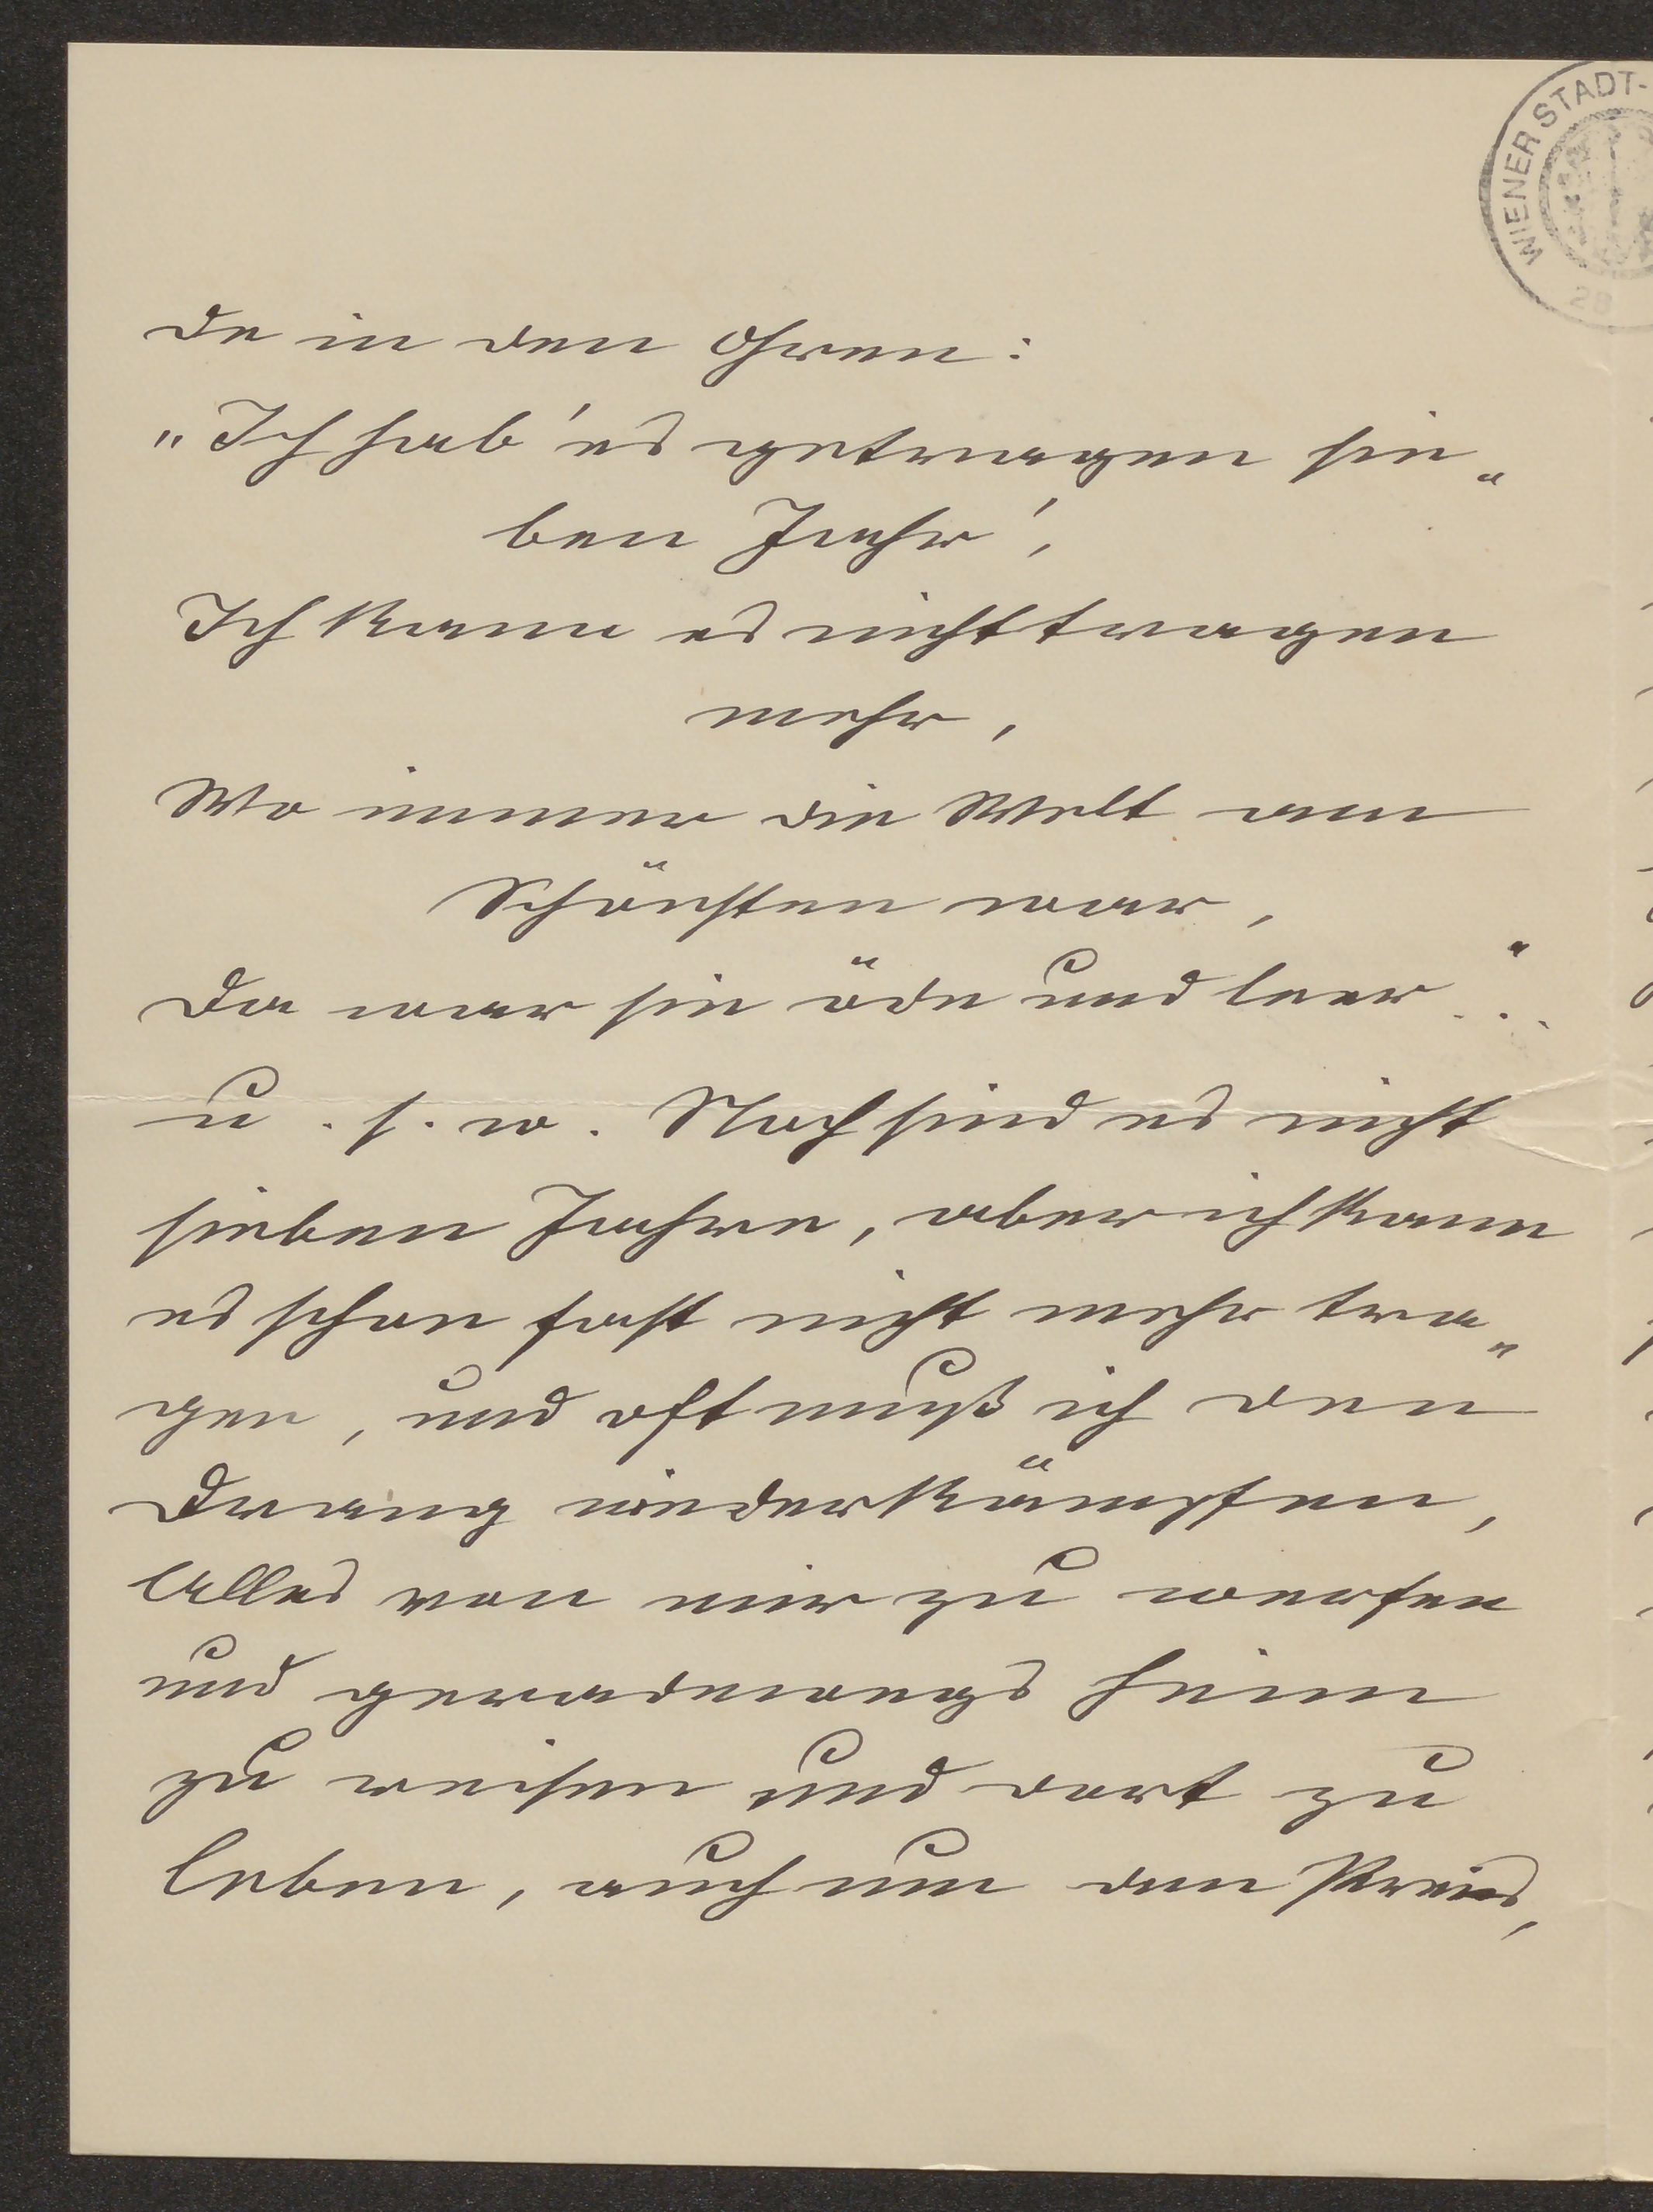 WIENER STADT-
28
de in den Ohren:
"Ich hab' es getragen sie„
ben Jahr',
Ich kann es nicht tragen
mehr,
Wo immer die Welt am
Schönsten war,
Da war sie öde und leer..."
u. s. w. Noch sind es nicht
sieben Jahre, aber ich kann
es schon fast nicht mehr tra„
gen, und oft muß ich den
Drang niederkämpfen,
Alles von mir zu werfen
und geradewegs heim
zu reisen und dort zu
leben, auch um den Preis,